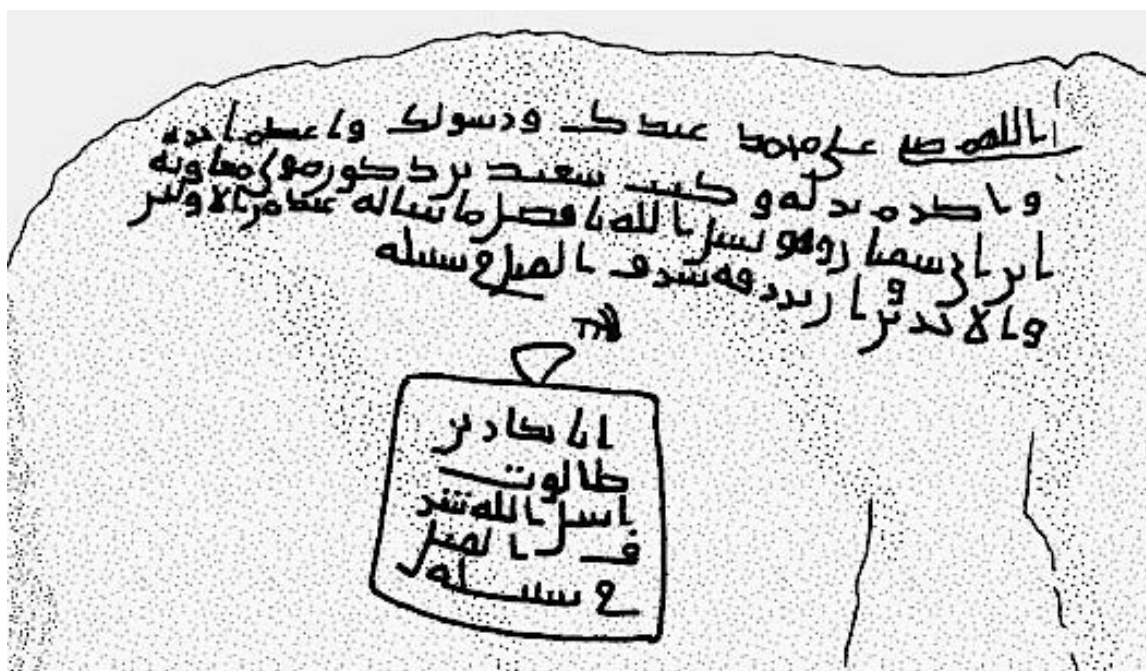 اللهم صل على محمد عبدك ورسولك واعظم اجره
واكرم نزله وكتب سعيد بن ذكور مولى معاوية
ابن ابي سفين وهو يسل الله بافضل ما ساله عبد من الاولين
والاخرين ان يرزقه شرف القتل في سبيله
انا بكار بن
طالوت
اسل الله شر
ف القتل
في سبيله